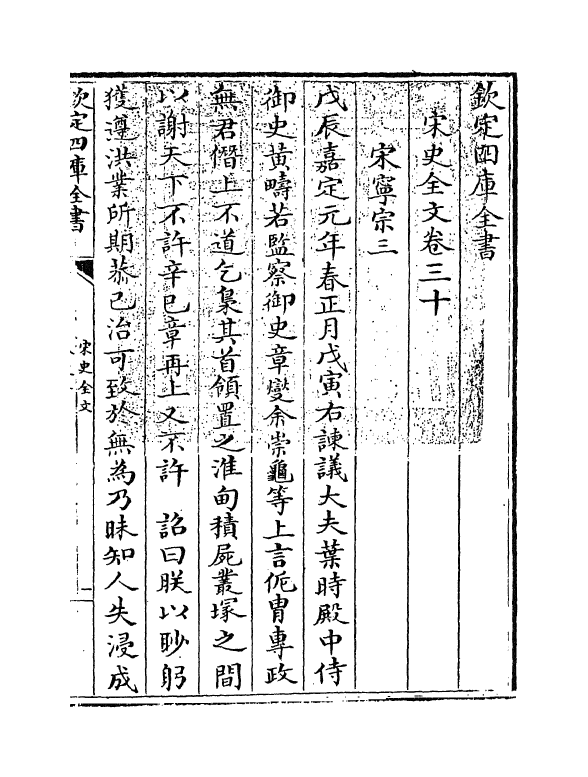 欽定四庫全書
宋史全文卷三十
宋寧宗三
戊辰嘉定元年春正月戊寅右諫議大夫葉時殿中侍
御史黃疇若監察御史章燮余崇龜等上言侂胄專政
無君僭上不道乞梟其首領置之淮甸積屍叢塚之間
以謝天下不許辛巳章再上又不許　詔曰朕以眇躬
獲遵洪業所期恭己治可致於無為乃昧知人失浸成
欽定四庫全書
宋史全文
一